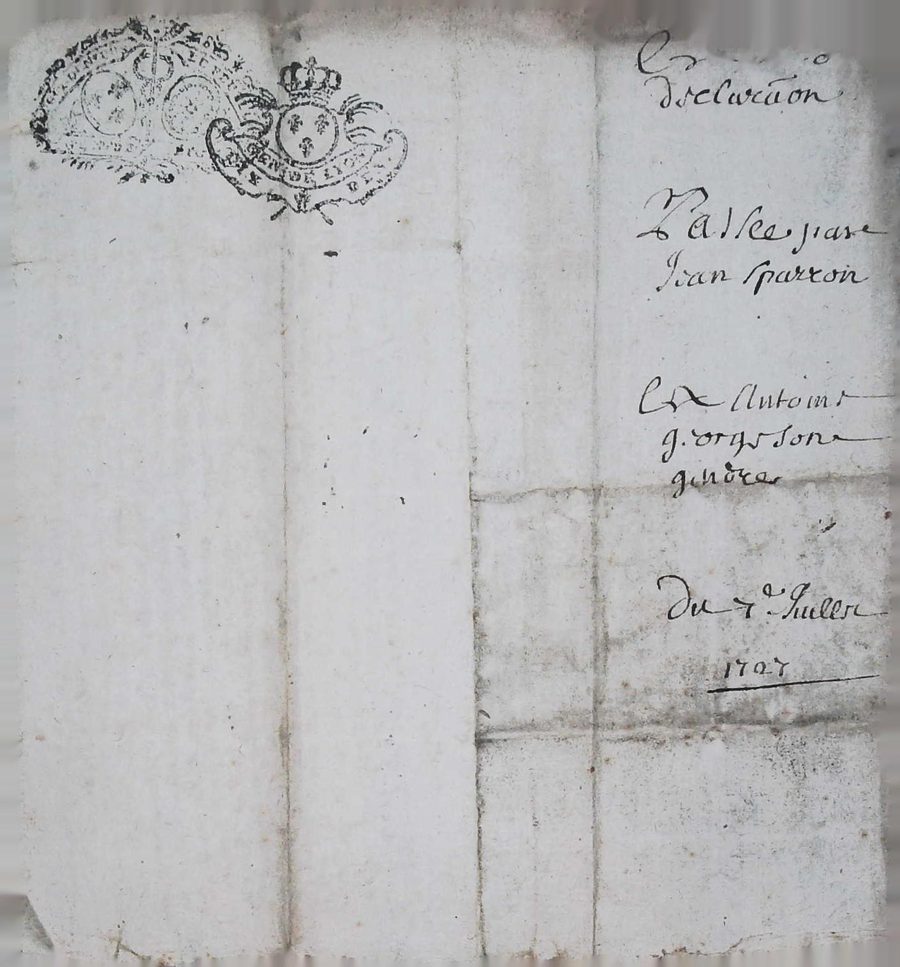 GEN. DE LYON
declaraon
Passee par
Jean Sparron
Et Antoine
george son
gendre
Du 7e Juillet
1727